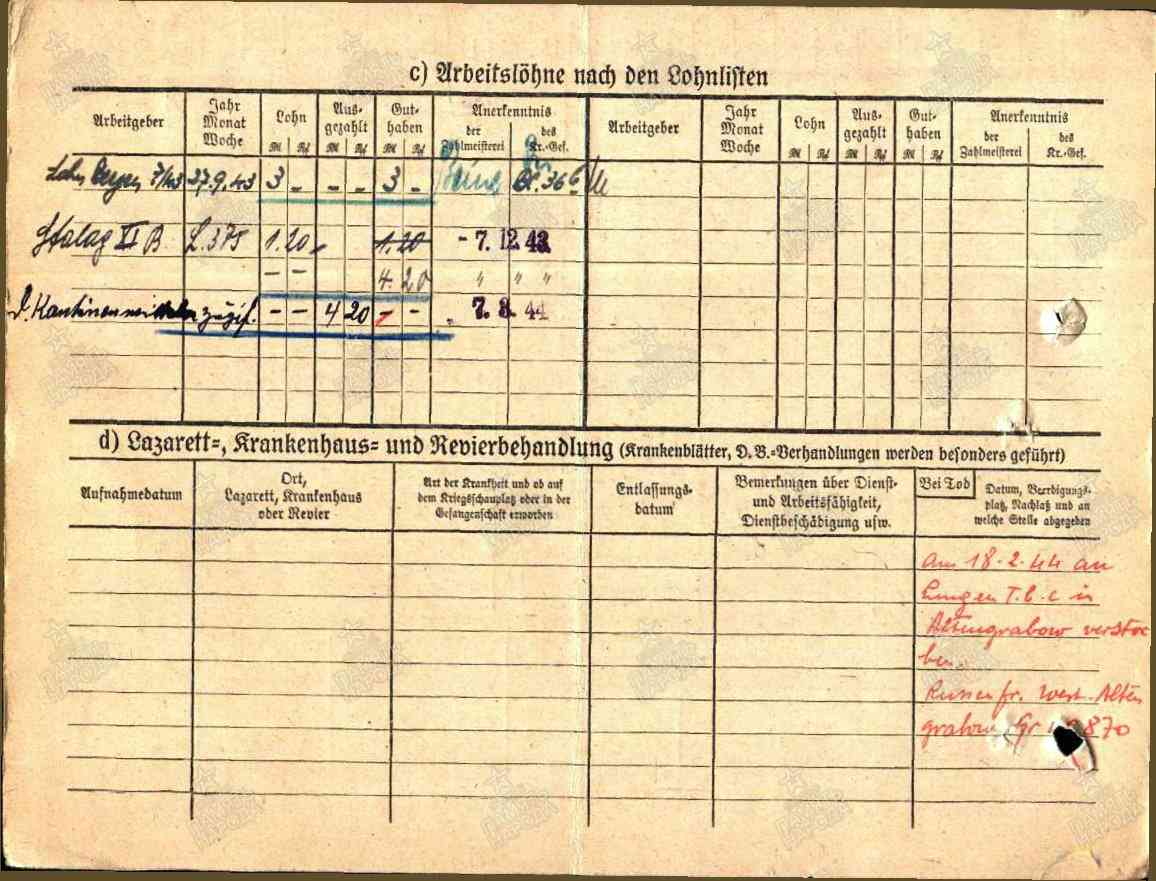 c) Arbeitslöhne nach den Lohnlisten
Arbeitgeber Jahr Monat Woche Lohn Aus- gezahlt Gut- haben Anerkenntnis der Zahlmeisterei des Kr.-Gef. Arbeitgeber Jahr Monat Woche Lohn Aus- gezahlt Gut- haben Anerkenntnis der Zahlmeisterei des Kr.-Gef.
RM Rpf RM Rpf RM Rpf RM Rpf RM Rpf RM Rpf
27.9.43 3 - - - 3 - Bl. 366
Stalag XI B L.375 1.20 1.20 - 7. 12. 43.
- - 4 20 " " "
- - 4 20 - - 7. 3. 44
d) Lazarett-, Krankenhaus- und Revierbehandlung (Krankenblätter, D. B.-Verhandlungen werden besonders geführt)
Aufnahmedatum
Ort,
Lazarett, Krankenhaus
oder Revier
Art der Krankheit und ob auf
dem Kriegsschauplatz oder in der
Gefangenschaft erworben
Entlassungs-
datum
Bemerkungen über Dienst-
und Arbeitsfähigkeit,
Dienstbeschädigung usw.
Bei Tod
Datum, Beerdigungs-
platz, Nachlaß und an
welche Stelle abgegeben
Am 18.2.44 an
Lungen T.b.c in
Altengrabow verstor
ben.
Russenfr. West. Alten
grabow Gr 870